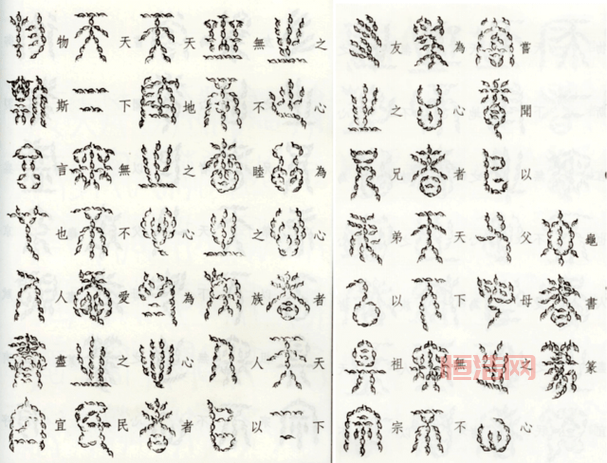 龜書篆
嘗聞以父母之心
為心者天下無不
友之兄弟以祖宗
之心為心者天下
無不睦之族人以
天地之心為心者
天下無不愛之民
物斯言也人盡宜